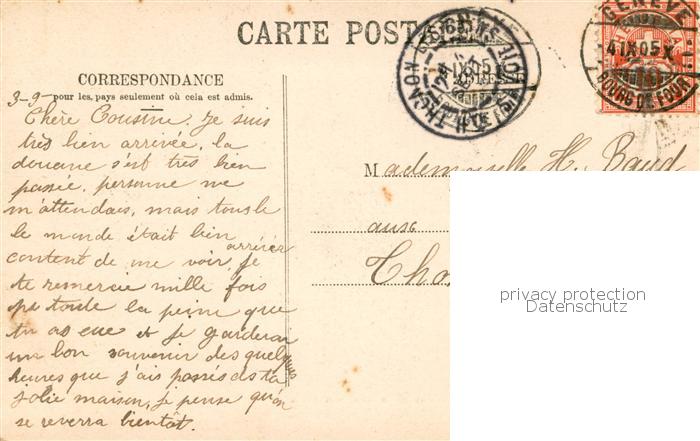 CARTE POST
CORRESPONDANCE
pour les pays seulement où cela est admis.
3-9-
Chère Cousine. Je suis
très bien arrivée, la
douane s'est très bien
passée, personne ne
m'attendais, mais tous le
le monde était bien
content de me voir arriver, je
te remercie mille fois
pr toute la peine que
tu as eue et je garderai
un bon souvenir des quelques
heures que j'ais passés ds ta
jolie maison, je pense qu'on
se reverra bientôt.
Mademoiselle H. Baud
aux
Tho
GENÈVE
4 IX 05 X
BOURG DE FOUR
THONON
HELVETIA
10
privacy protection
Datenschutz